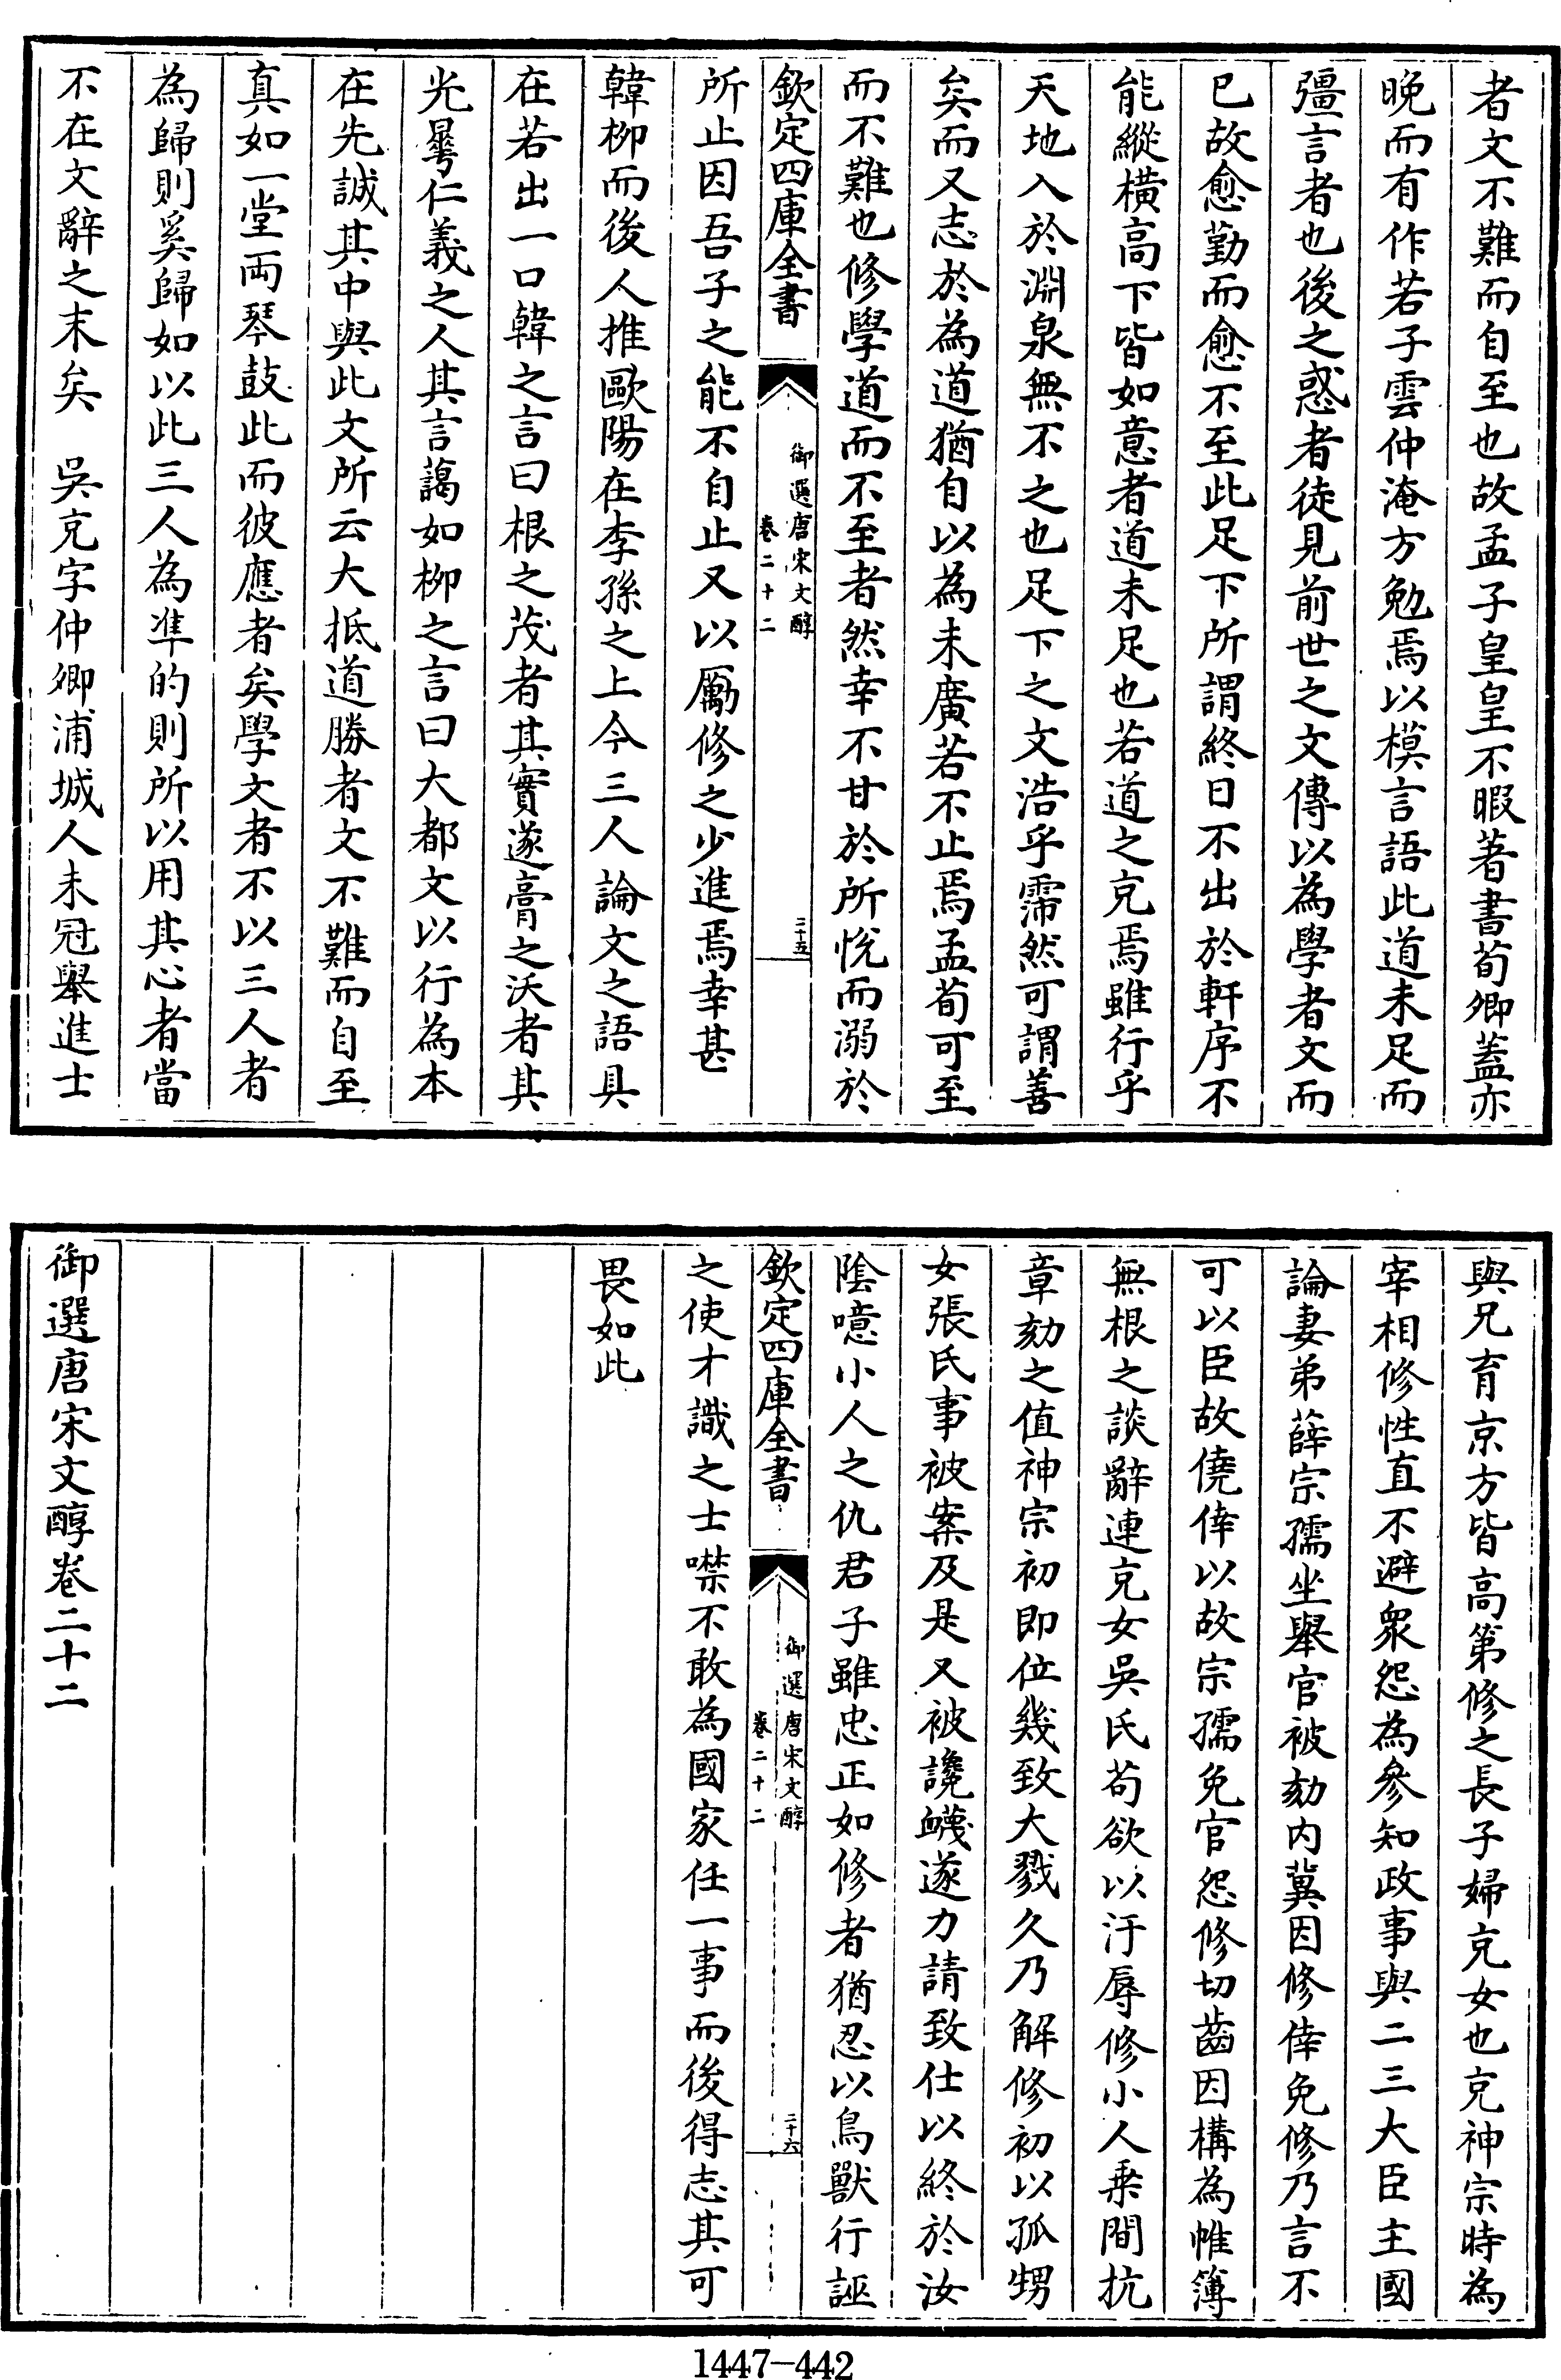 者文不難而自至也故孟子皇皇不暇著書荀卿蓋亦
晚而有作若子雲仲淹方勉焉以模言語此道未足而
彊言者也後之惑者徒見前世之文傳以為學者文而
已故愈勤而愈不至此足下所謂終日不出於軒序不
能縱橫高下皆如意者道未足也若道之充焉雖行乎
天地入於淵泉無不之也足下之文浩乎霈然可謂善
矣而又志於為道猶自以為未廣若不止焉孟荀可至
而不難也修學道而不至者然幸不甘於所悅而溺於
欽定四庫全書
御選唐宋文醇
卷二十二
三十五
所止因吾子之能不自止又以厲修之少進焉幸甚
韓柳而後人推歐陽在李孫之上今三人論文之語具
在若出一口韓之言曰根之茂者其實遂膏之沃者其
光曄仁義之人其言藹如柳之言曰大都文以行為本
在先誠其中與此文所云大抵道勝者文不難而自至
真如一堂両琴鼓此而彼應者矣學文者不以三人者
為歸則奚歸如以此三人為準的則所以用其心者當
不在文辭之末矣　吳充字仲卿浦城人未冠舉進士
與兄育京方皆高第修之長子婦充女也充神宗時為
宰相修性直不避衆怨為參知政事與二三大臣主國
論妻弟薛宗孺坐舉官被劾内冀因修倖免修乃言不
可以臣故僥倖以故宗孺免官怨修切齒因構為帷簿
無根之談辭連充女吳氏苟欲以汙辱修小人乗間抗
章劾之值神宗初即位幾致大戮久乃解修初以孤甥
女張氏事被案及是又被讒衊遂力請致仕以終於汝
陰噫小人之仇君子雖忠正如修者猶忍以鳥獸行誣
欽定四庫全書
御選唐宋文醇
卷二十二
二十六
之使才識之士噤不敢為國家任一事而後得志其可
畏如此
御選唐宋文醇卷二十二
1447-442